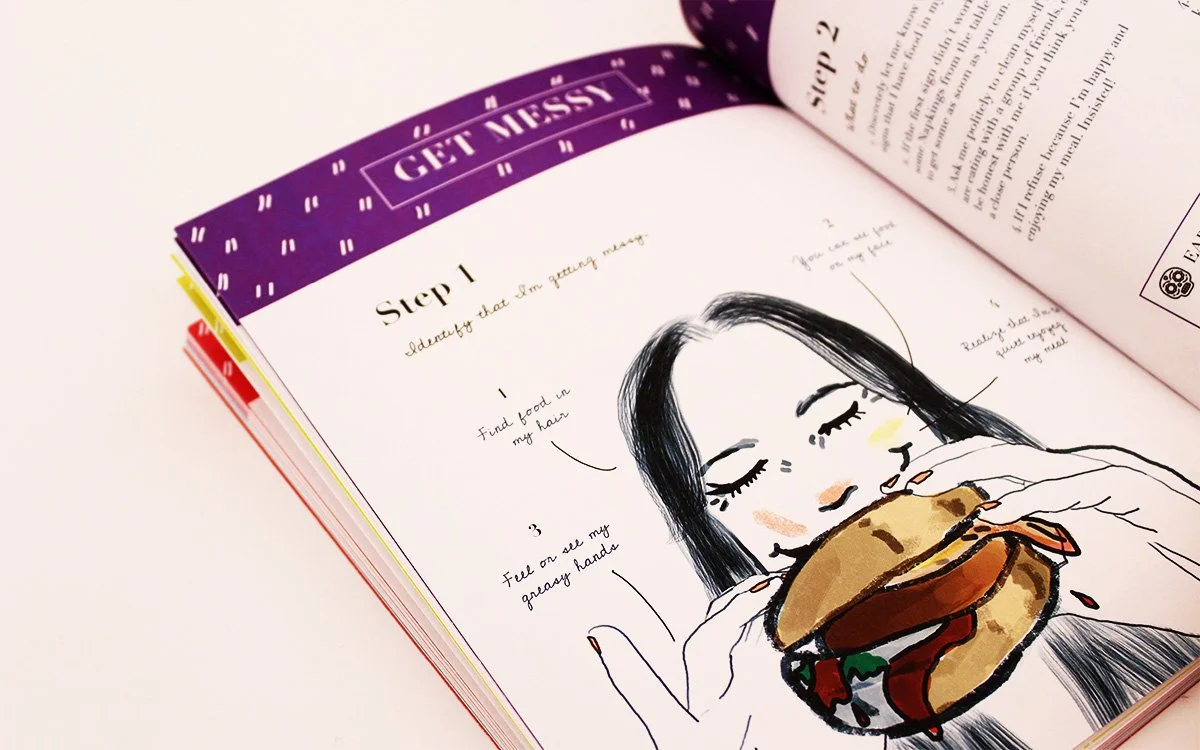 GET MESSY
Step 1
Identify that I'm getting messy.
1
Find food in
my hair
2
You can see food
on my face
3
Feel or see my
greasy hands
4
Realize that I'm
quiet enjoying
my meal
Step 2
What to do
1. Discretely let me know
signs that I have food in my
2. If the first sign didn't work
some Napkings from the table
to get some as soon as you can.
3. Ask me politely to clean myself
are eating with a group of friends,
be honest with me if you think you a
a close person.
4. If I refuse because I'm happy and
enjoying my meal. Insisted!